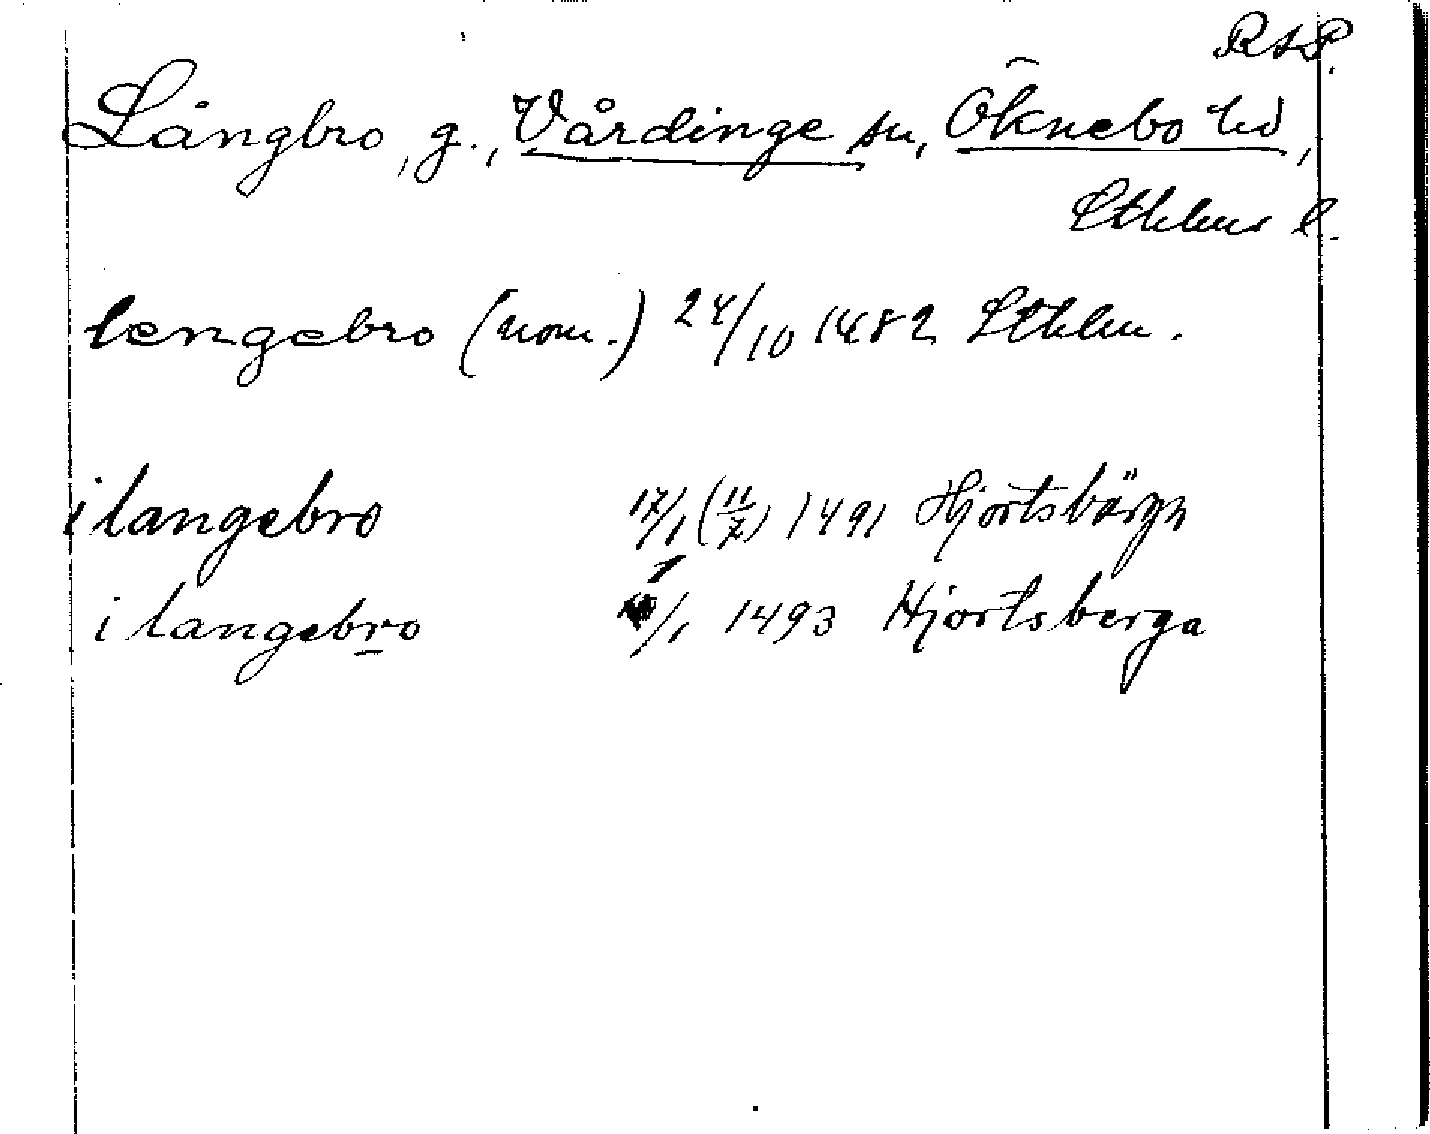 RAP.
Långbro, g., Vårdinge sn, Öknebo hd,
Sthlms l.
lengebro (nom.) 24/10 1482 Sthlm.
i langebro 17/1 (11/7) 1491 Hjortsbärgh
i langebro /1 1493 Hjortsberga